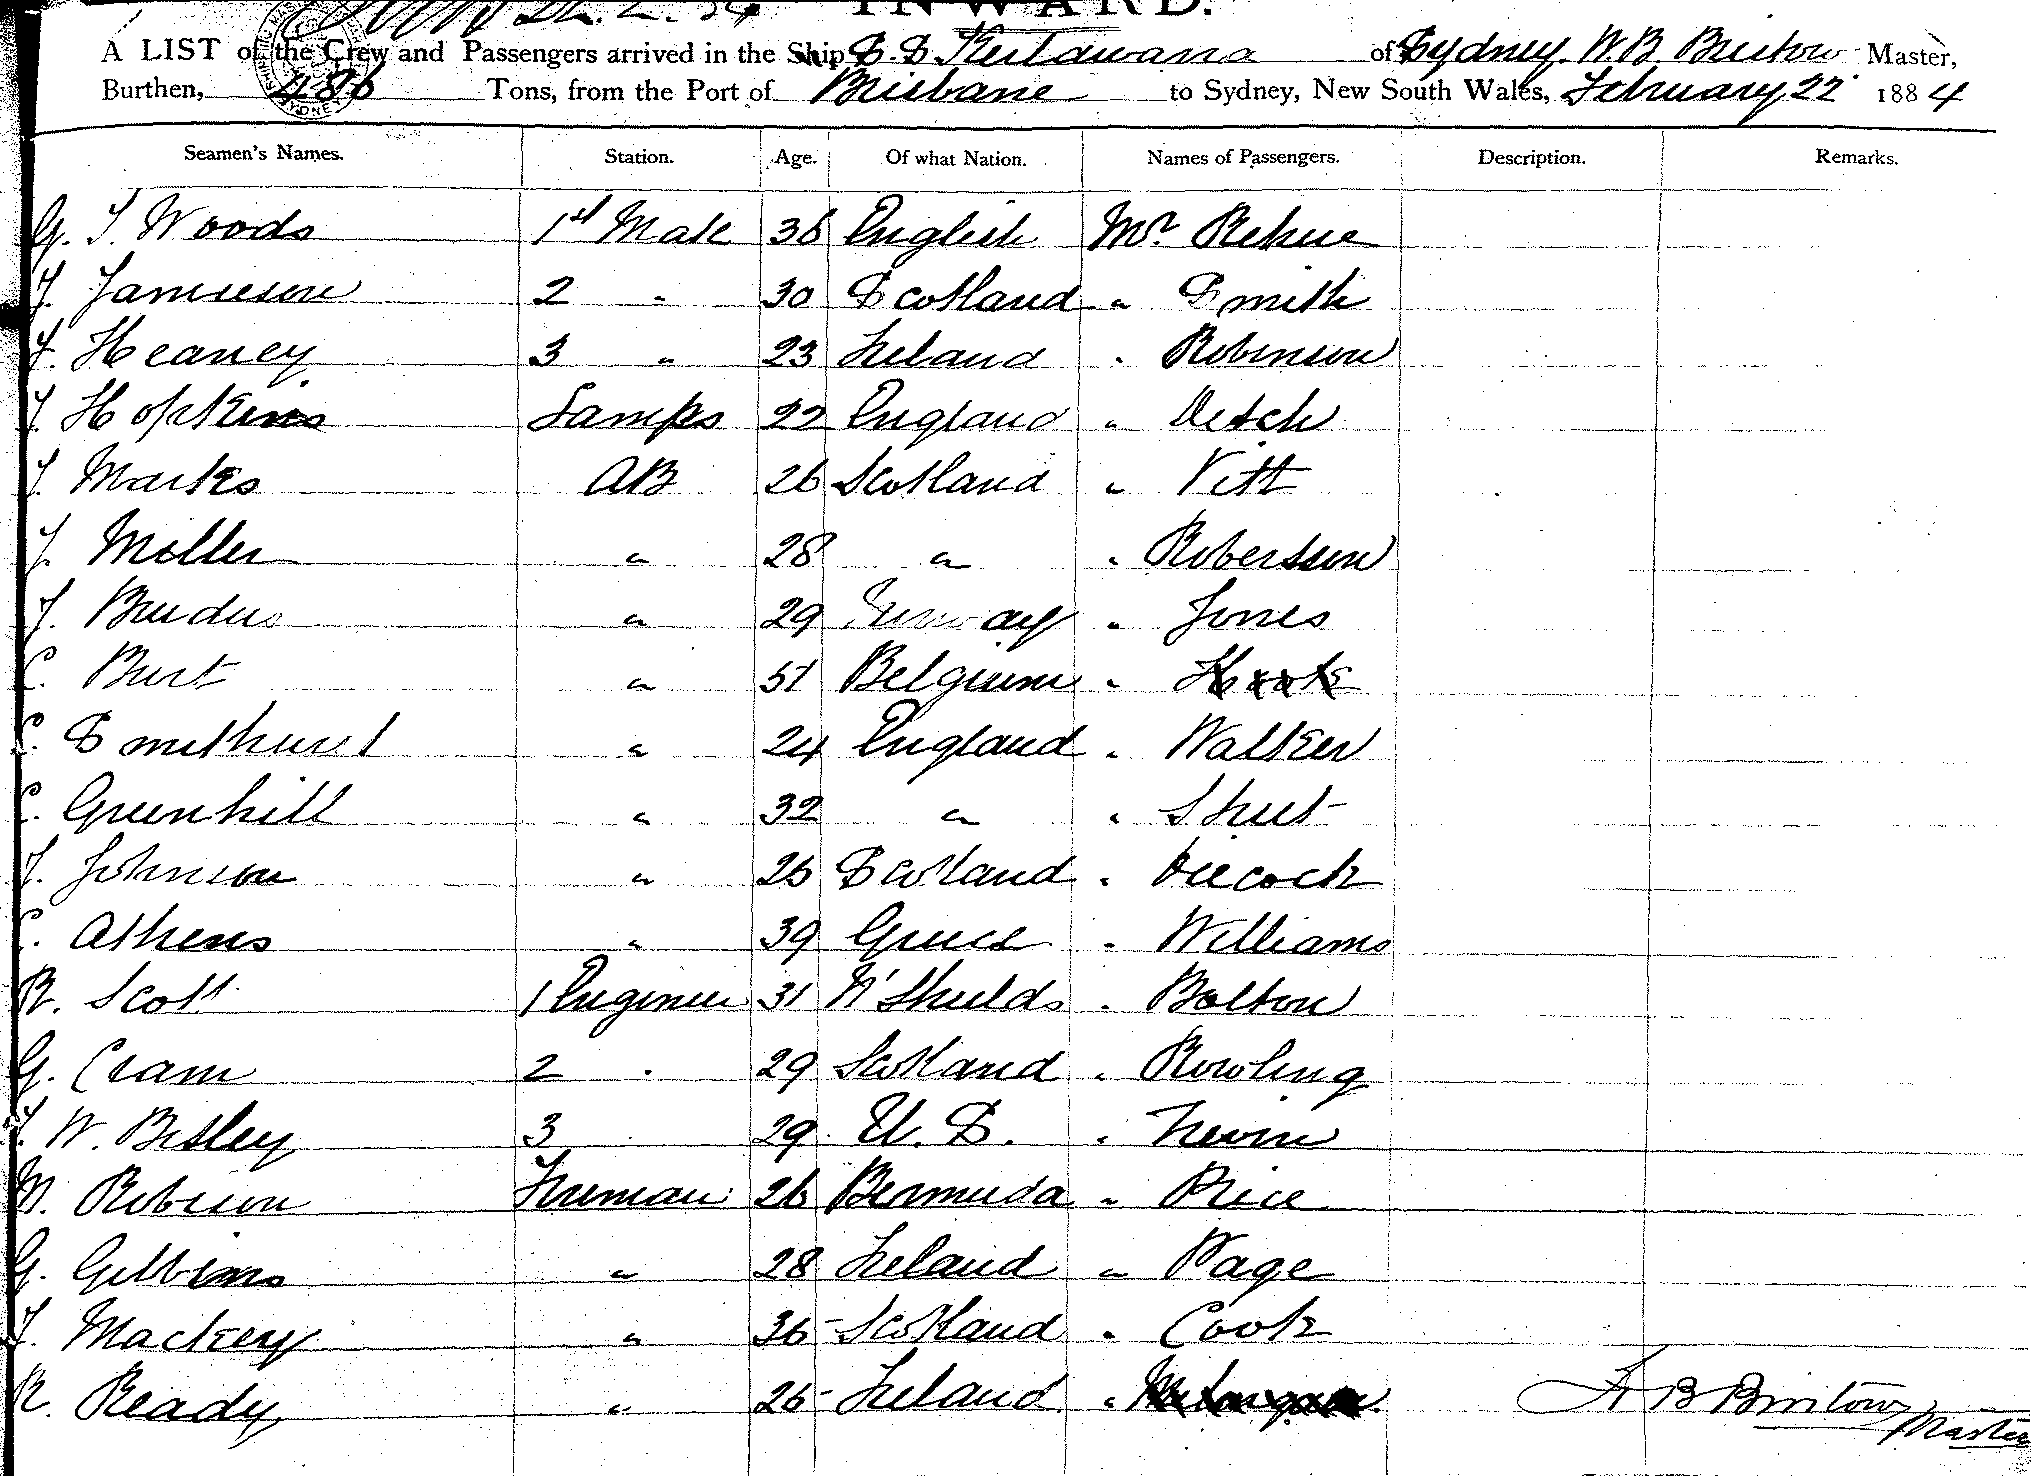 INWARD.
A LIST of the Crew and Passengers arrived in the Ship S. S. Keilawarra of Sydney, W. B. Bristow Master,
Burthen, 486 Tons, from the Port of Brisbane to Sydney, New South Wales, February 22 1884
Seamen's Names. Station. Age. Of what Nation. Names of Passengers. Description. Remarks.
G. T. Woods 1st Mate 38 English Mr.
J. Jamieson 2 " 30 Scotland " Smith
F. Heaney 3 " 23 Ireland " Robinson
J. Hopkins Lamps 22 England "
J. Marks AB 26 Scotland "
J. Miller " 28 " " Robertson
J. " 29 Norway " Jones
C. Burt " 51 Belgium "
C. Smethurst " 24 England " Walker
C. Greenhill " 32 " "
J. Johnson " 25 Scotland "
C. Athens " 39 Greece " Williams
R. Scott 1 Engineer 31 N Shields " Bolton
G. Cram 2 " 29 Scotland " Rowling
J. W. Besley 3 29 U. S. "
W. Robeson Fireman 26 Bermuda " Price
G. Gibbins " 28 Ireland " Page
J. Mackey " 36 Scotland " Cook
R. Ready " 25 Ireland "
B Bristow
Master